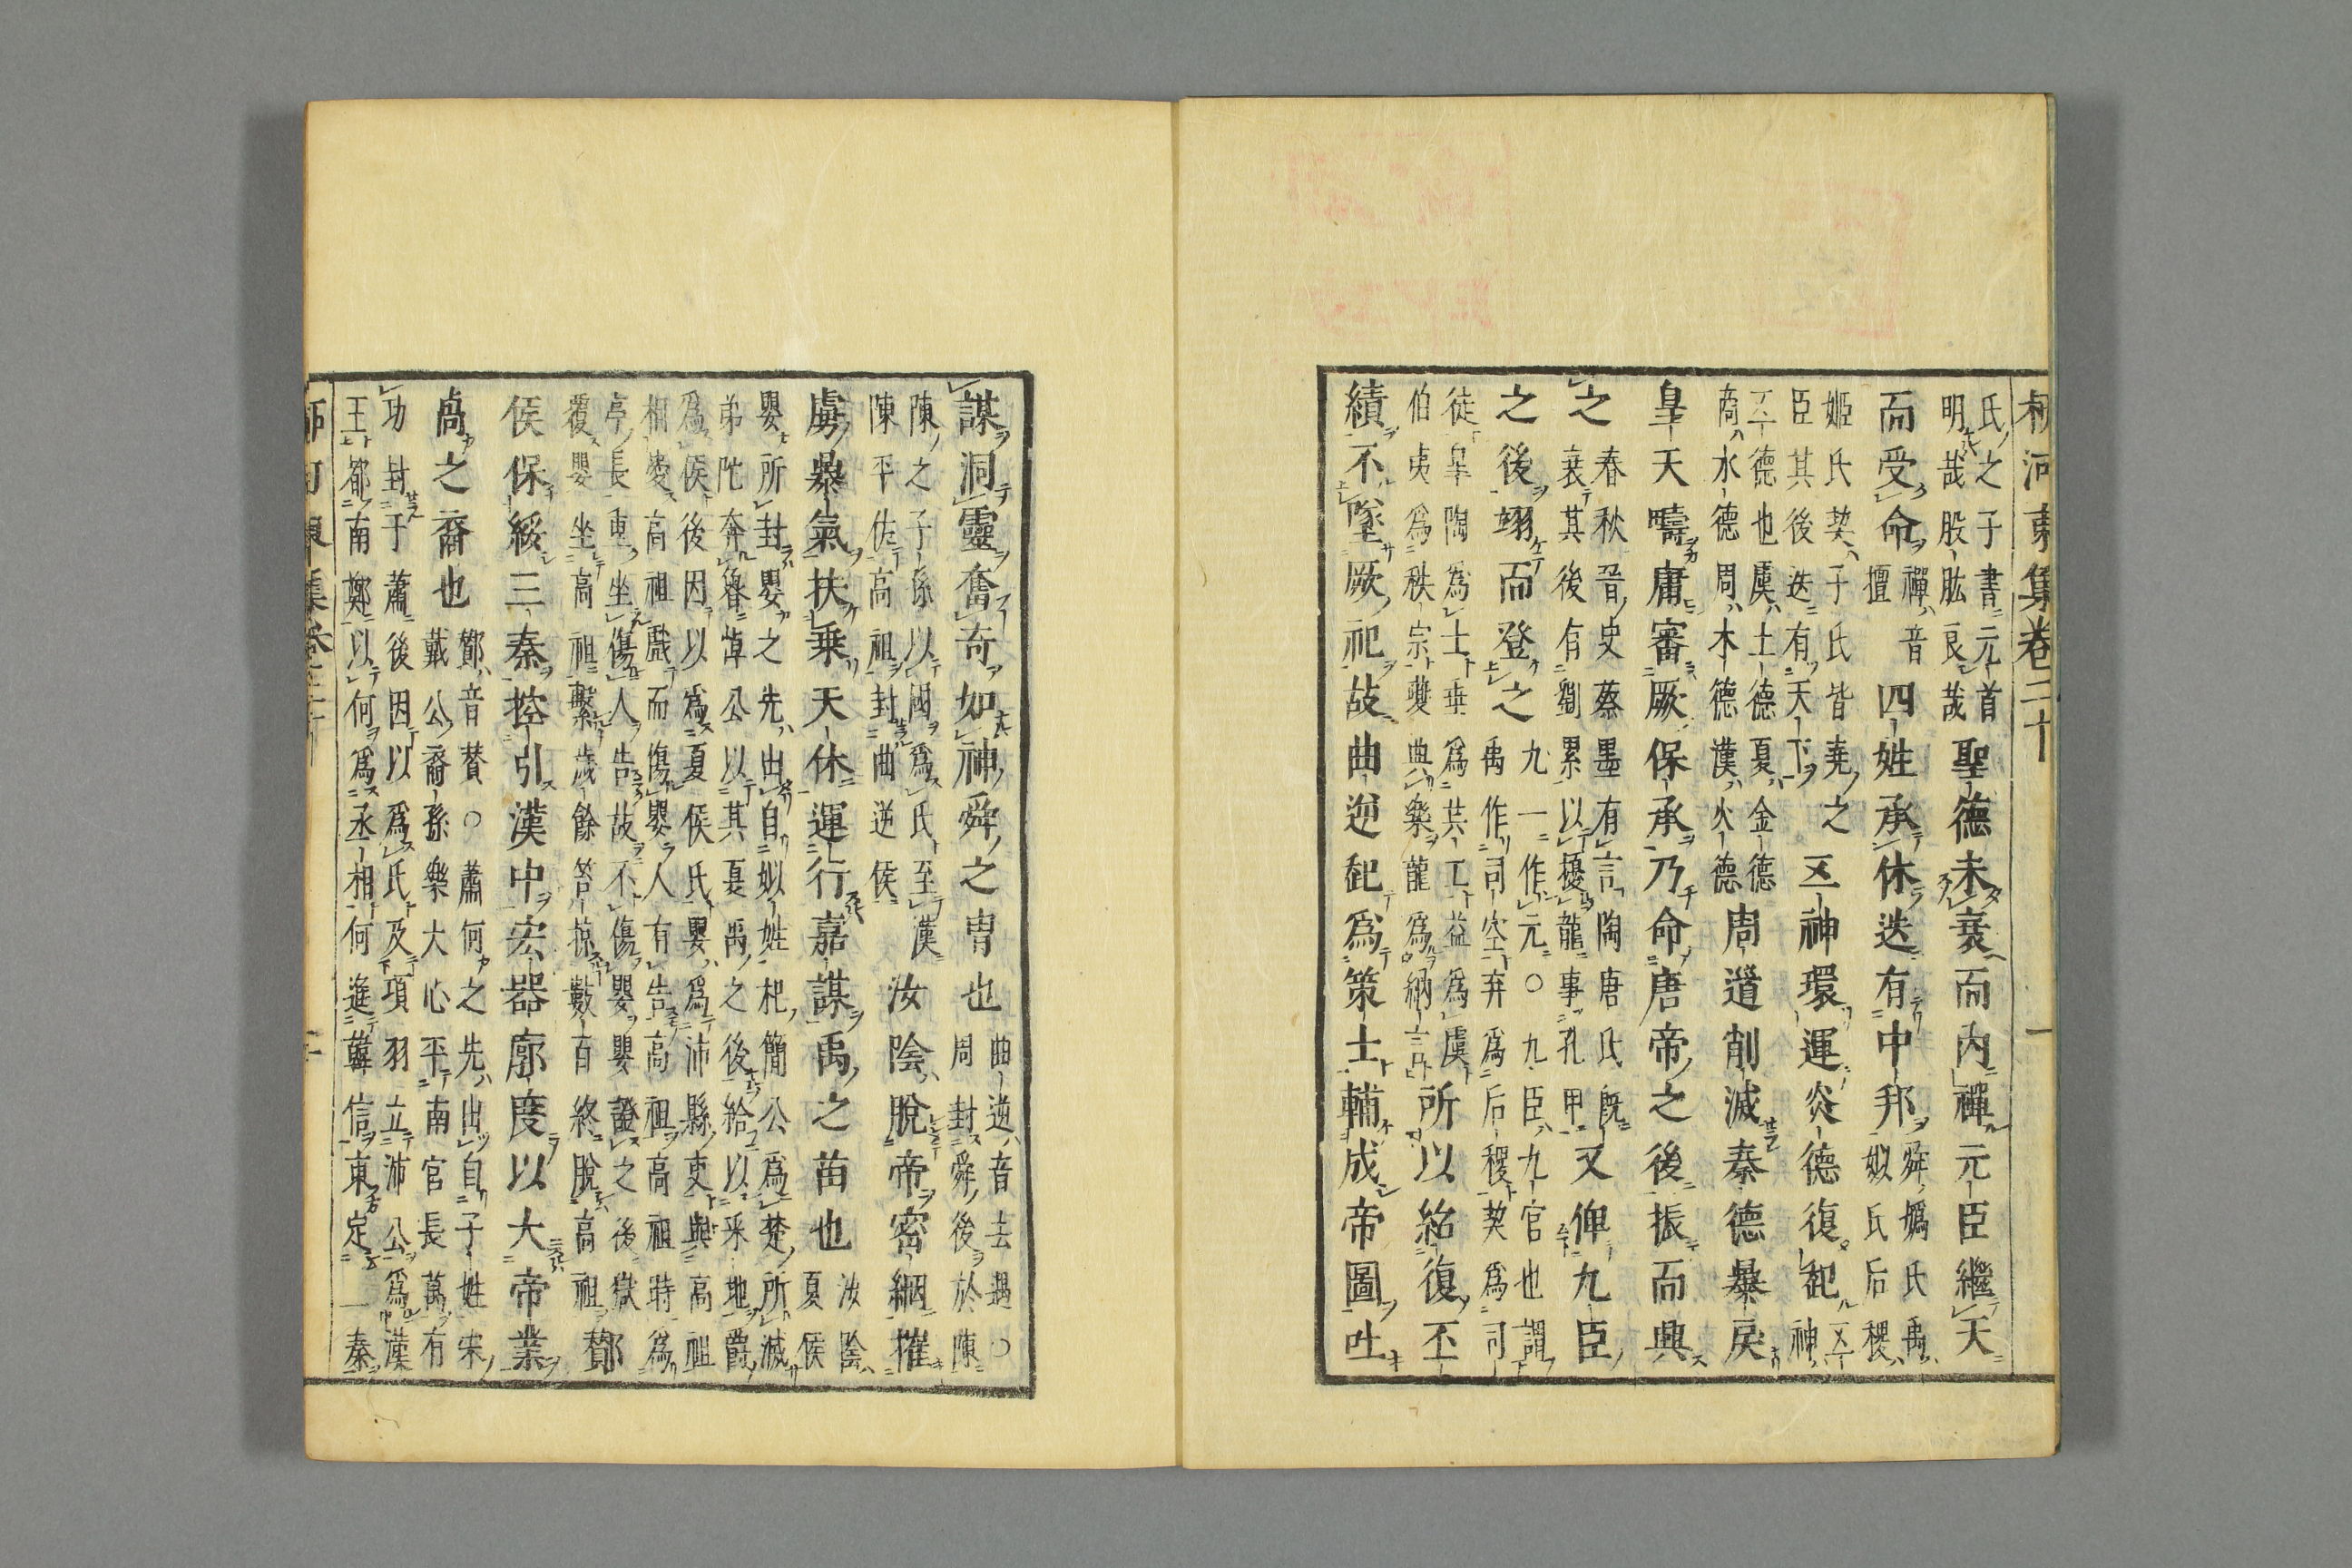 柳河東集卷二十　一
氏之子書元首
明哉股肱良哉
聖德未衰而内禪元臣繼天
而受命
禪音
擅
四姓承休迭有中邦
舜嬀氏禹
姒氏后稷
姬氏契子氏皆堯之
臣其後迭有天下
五神環運炎德復起
五
神
德也虞土德夏金德
商水德周木德漢火德
周道削滅秦德暴戾
皇天疇庸審厥保承乃命唐帝之後振而興
之
春秋晉史蔡墨有言陶唐氏旣
衰其後有劉累以擾龍事孔甲
又俾九臣
之後翊而登之
九一作元○九臣九官也謂
禹作司空弃爲后稷契爲司
徒臯陶爲士垂爲共工益爲虞
伯夷爲秩宗夔典樂龍爲納言
所以紹復丕
績不墜厥祀故曲逆起爲策士輔成帝圖吐
謀洞靈奮奇如神舜之冑也
曲逆音去遇○
周封舜後於陳
陳之子孫以國爲氏至漢
陳平佐高祖封曲逆侯
汝陰脫帝密網摧
虜暴氣扶乗天休運行嘉謀禹之苗也
汝陰
夏侯
嬰所封嬰之先出自姒姓杞簡公爲楚所滅
弟佗奔魯悼公以其夏禹之後給以采地爵
爲侯後因以爲夏侯氏嬰爲沛縣吏與高祖
相愛高祖戲而傷嬰人有告高祖高祖時爲
亭長重坐傷人告故不傷嬰嬰證之後獄
覆嬰坐高祖繫歲餘笞掠數百終脫高祖
酇
侯保綏三秦控引漢中宏器廓度以大帝業
卨之裔也
酇音賛○蕭何之先出自子姓宋
戴公裔孫樂大心平南宮長萬有
功封于蕭後因以爲氏及項羽立沛公爲漢
王都南鄭以何爲丞相何進韓信東定三秦